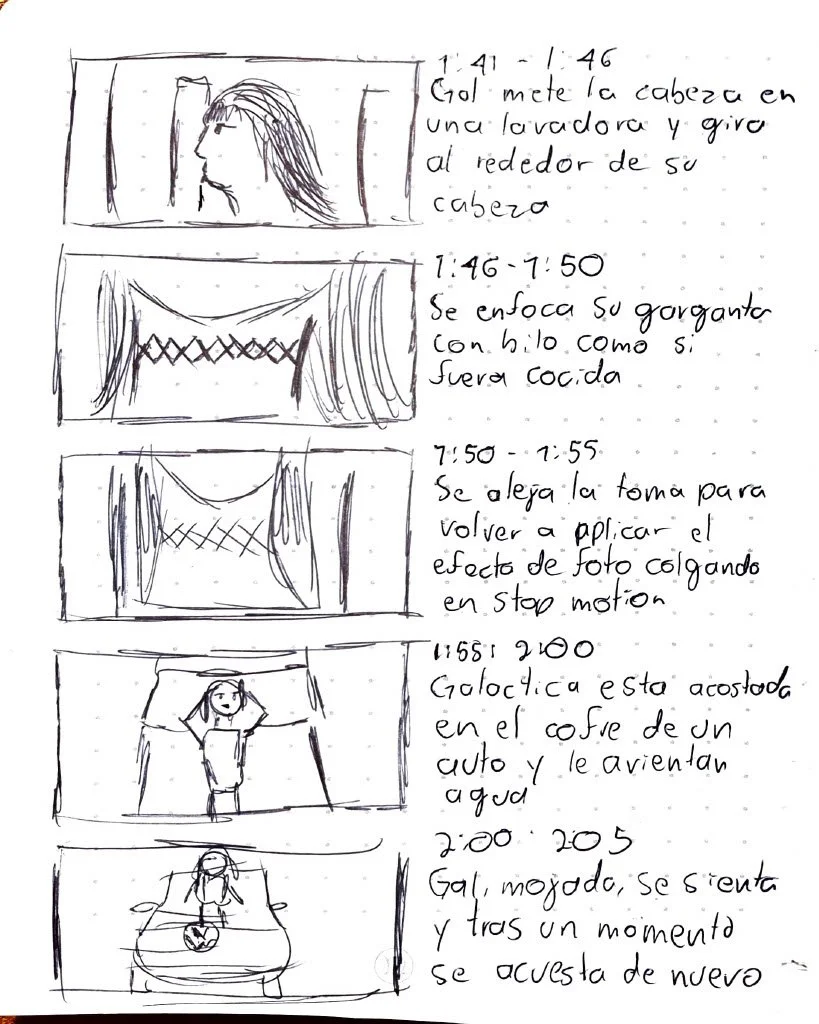 1:41 - 1:46
Gal mete la cabeza en
una lavadora y gira
al rededor de su
cabeza
1:46 - 1:50
Se enfoca su garganta
con hilo como si
fuera cocida
1:50 - 1:55
Se aleja la toma para
volver a aplicar el
efecto de foto colgando
en stop motion
1:55: 2:00
Galactica esta acostada
en el cofre de un
auto y le avientan
agua
2:00 · 205
Gal, mojada, se sienta
y tras un momento
se acuesta de nuevo